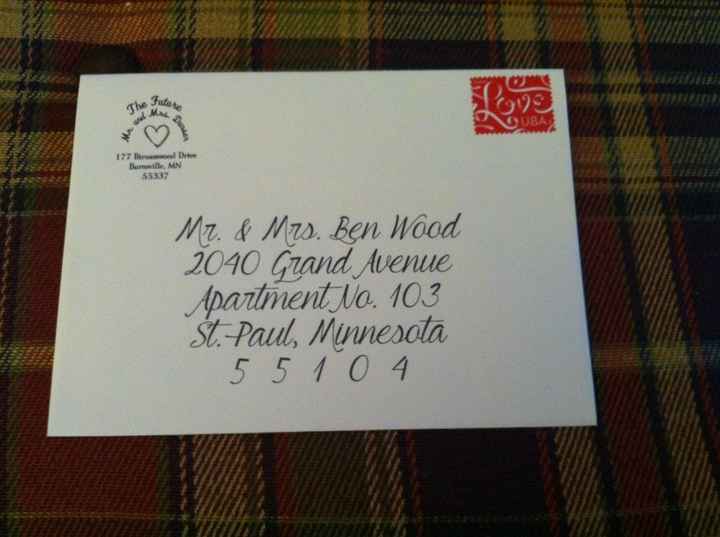 The Future
Mr. and Mrs.
Drive
Burnsville, MN
55337
Love
USA
Mr. & Mrs. Ben Wood
2040 Grand Avenue
Apartment No. 103
St. Paul, Minnesota
5 5 1 0 4